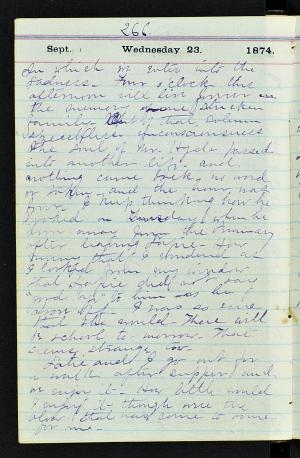 266.
Sept. Wednesday 23. 1874.
In which we enter into the
sadness. Four o'clock this
afternoon will live forever in
the memory of one stricken
family. Out of that solemn
speechless unconsciousness
the soul of Mr. Hyde passed
into another life and
nothing came back, no word
or token, and the hour, not
I keep thinking how he
looked on Thursday when he
away from the
after leaving Sophie. How
that I
I looked from my window
that Sophie did not say
"good bye" to him as he
I was so sure
that she would. There will
be school to morrow. That
seems strange, too.
and I go out for
a walk after supper and
we enjoy it. How little would
I enjoy it though were the
blow that has come to
for me.